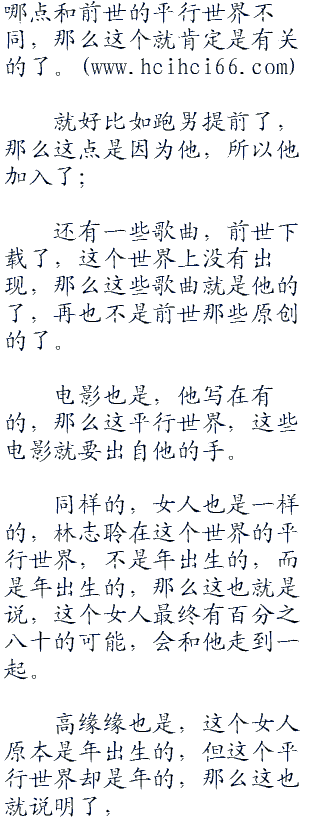 哪点和前世的平行世界不
同，那么这个就肯定是有关
的了。(www.hcihci66.com)
就好比如跑男提前了，
那么这点是因为他，所以他
加入了；
还有一些歌曲，前世下
载了，这个世界上没有出
现，那么这些歌曲就是他的
了，再也不是前世那些原创
的了。
电影也是，他写在有
的，那么这平行世界，这些
电影就要出自他的手。
同样的，女人也是一样
的，林志聆在这个世界的平
行世界，不是年出生的，而
是年出生的，那么这也就是
说，这个女人最终有百分之
八十的可能，会和他走到一
起。
高缘缘也是，这个女人
原本是年出生的，但这个平
行世界却是年的，那么这也
就说明了，